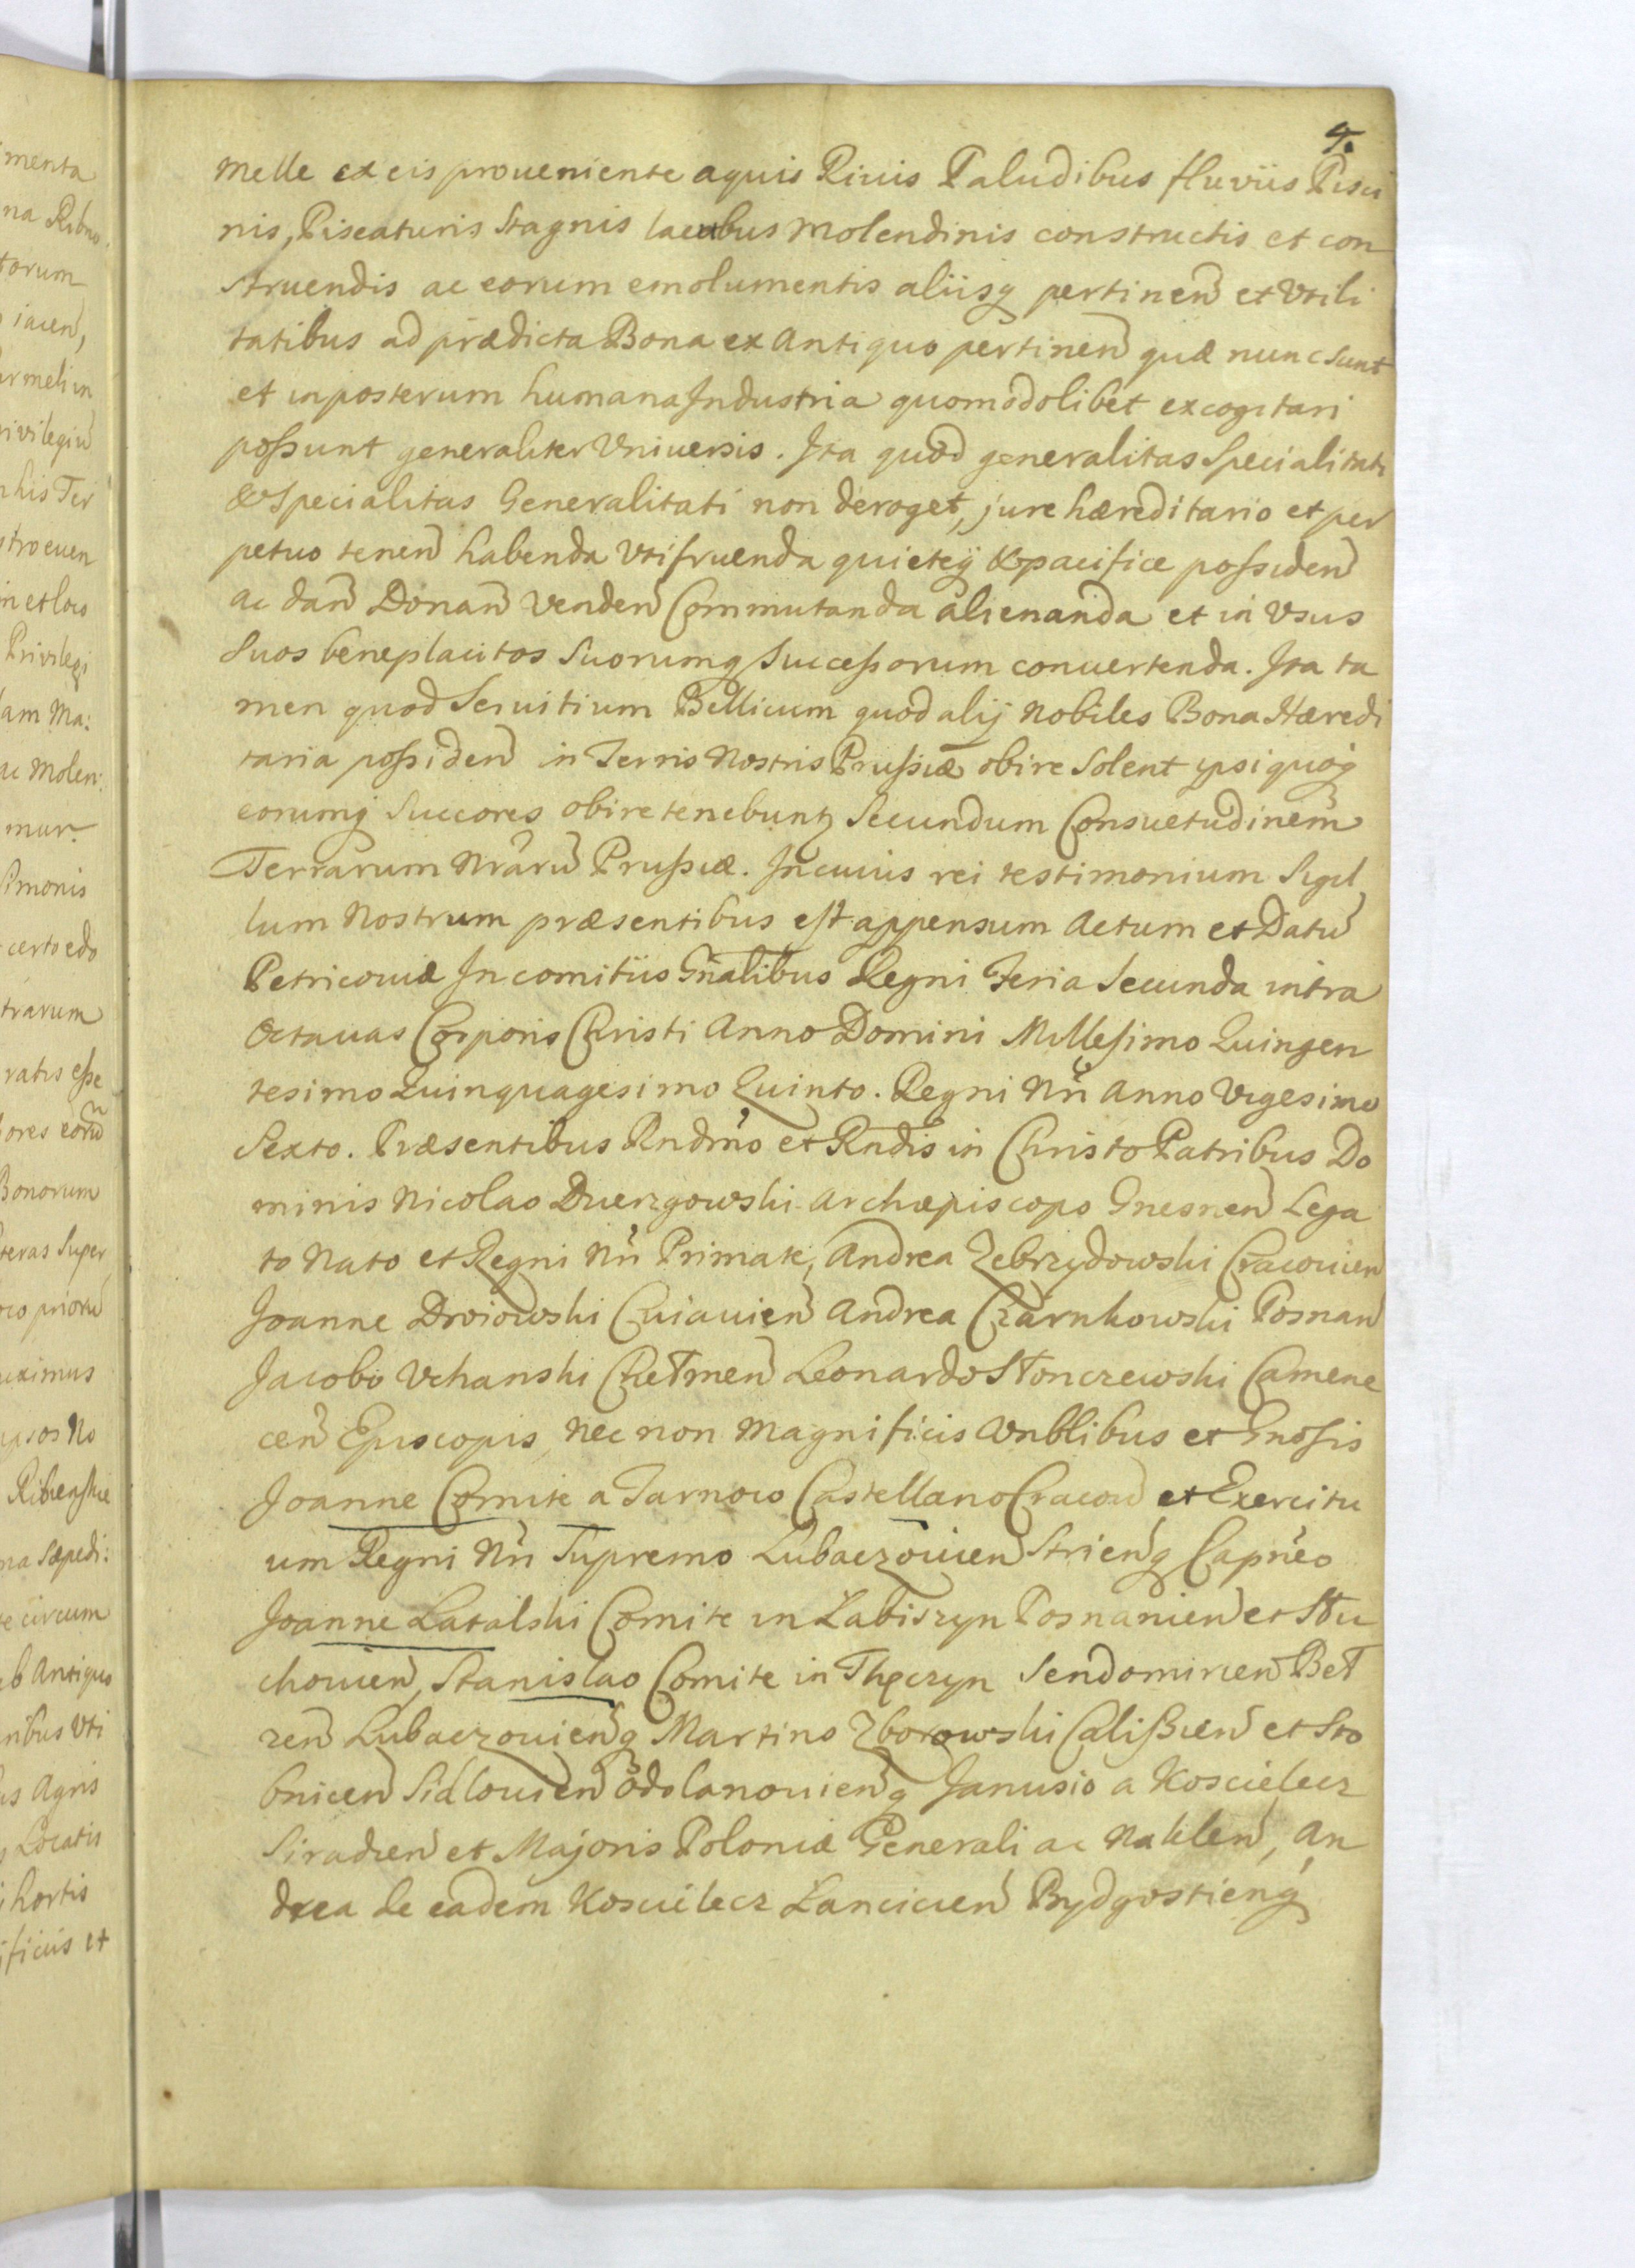 4.
Melle ex eis proueniente aquis Riuis Paludibus fluviis Pisci
nis, Piscaturis Stagnis lacubus Molendinis constructis et con
struendis ac eorum emolumentis aliisq pertinen et Vtili
tatibus ad prædicta Bona ex Antiquo pertinen quæ nunc sunt
et inposterum humana Industria quomodolibet excogitari
possunt generaliter Vniuersis. Ita quod generalitas Specialitati
& Specialitas Generalitati non deroget, jure hæreditario et per
petuo tenen habenda Vtifruenda quieteq & pacifice possiden
ac dan Donan Venden Commutanda alienanda et in Vsus
Suos beneplacitos Suorumq Successorum conuertenda. Ita ta
men quod Seruitium Bellicum quod alij Nobiles Bona Hæredi
taria possiden in Terris Nostris Prussiæ obire Solent ipsi quoq
eorumq Succores obire tenebuntz Secundum Consuetudinem
Terrarum Nraru Prussiæ. In cuius rei testimonium Sigil
lum Nostrum præsentibus est appensum Actum et Datu
Petricouiæ In comitiis Gnalibus Regni Feria Secunda intra
Octauas Corporis Christi Anno Domini Millesimo Quingen
tesimo Quinquagesimo Quinto. Regni Nri Anno Vigesimo
Sexto. Præsentibus Rndmo et Rndis in Christo Patribus Do
minis Nicolao Dzierzgowski Archæpiscopo Gnesnen Lega
to Nato et Regni Nri Primate, Andrea Zebrzydowski Cracouien
Joanne Droiowski Cuiauien Andrea Czarnkowski Posnan
Jacobo Vchanski Chelmen Leonardo Slonczewski Camene
cen Episcopis nec non Magnificis Vnblibus et Gnosis
Joanne Comite a Tarnow Castellano Cracou et Exercitu
um Regni Nri Supremo Lubaczouien Strienq Capneo
Joanne Latalski Comite in Labiszyn Posnanien et Slu
chouien, Stanislao Comite in Theczyn Sendomirien Bel
zen Lubaczouienq Martino Zborowski Calissien et Sto
bnicen Sidlouien Odolanouienq Janusio a Koscielecz
Siradien et Majoris Poloniæ Generali ac Naklen, An
drea de eadem Koscielecz Lancicien Bydgostienq